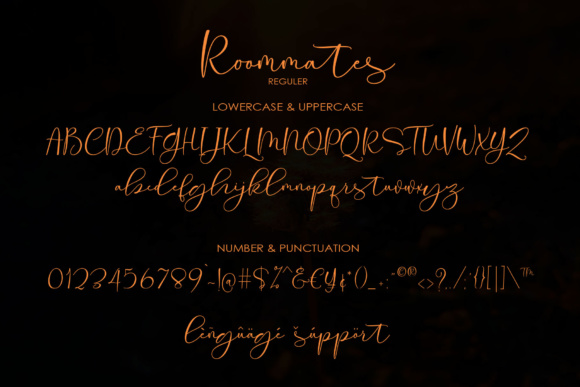 Roommates
REGULER
LOWERCASE & UPPERCASE
ABCDEFGHIJKLMNOPQRSTUVWXYZ
abcdefghijklmnopqrstuvwxyz
NUMBER & PUNCTUATION
0123456789`~!@#$%^&€£¥¢*()_+:"©®<>?,./;'{}[]|\™
lèñgûägé šúppört